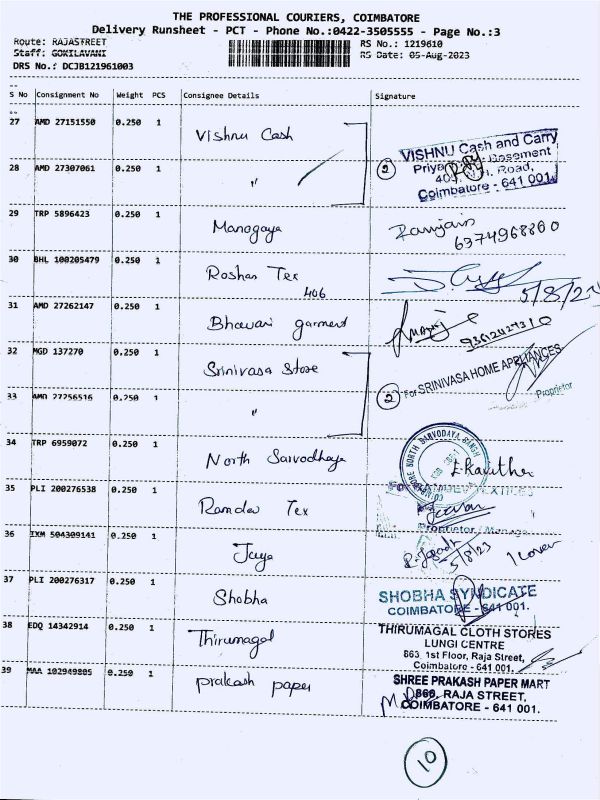 THE PROFESSIONAL COURIERS, COIMBATORE
Delivery Runsheet - PCT - Phone No.:0422-3505555 - Page No.:3
Route: RAJASTREET RS No.: 1219610
Staff: GOKILAVANI RS Date: 05-Aug-2023
DRS No.: DCJB121961003
S No Consignment No Weight PCS Consignee Details Signature
27 AMD 27151550 0.250 1 Vishnu Cash
VISHNU Cash and Carry
Basement
28 AMD 27307061 0.250 1 "
2
H. Road,
Coimbatore - 641 001.
29 TRP 5896423 0.250 1 Manogaya
6374968860
30 BHL 100205479 0.250 1 Roshan Tex
406
5/8/23
31 AMD 27262147 0.250 1 Bhavani garment
32 MGD 137270 0.250 1 Srinivasa Store
For SRINIVASA HOME APPLIANCES
Proprietor
33 AMD 27256516 0.250 1 "
2
34 TRP 6959072 0.250 1 North Sarvodhaya
NORTH SARVODAYA SANGH
35 PLI 200276538 0.250 1 Ramdev Tex
Proprietor / Manager
36 IXM 504309141 0.250 1 Jaya
5/8/23
1 cover
37 PLI 200276317 0.250 1 Shobha
SHOBHA SYNDICATE
COIMBATORE - 641 001.
38 EDQ 14342914 0.250 1 Thirumagal
THIRUMAGAL CLOTH STORES
LUNGI CENTRE
863, 1st Floor, Raja Street,
Coimbatore - 641 001.
39 MAA 102949805 0.250 1 prakash paper
SHREE PRAKASH PAPER MART
866, RAJA STREET,
COIMBATORE - 641 001.
10